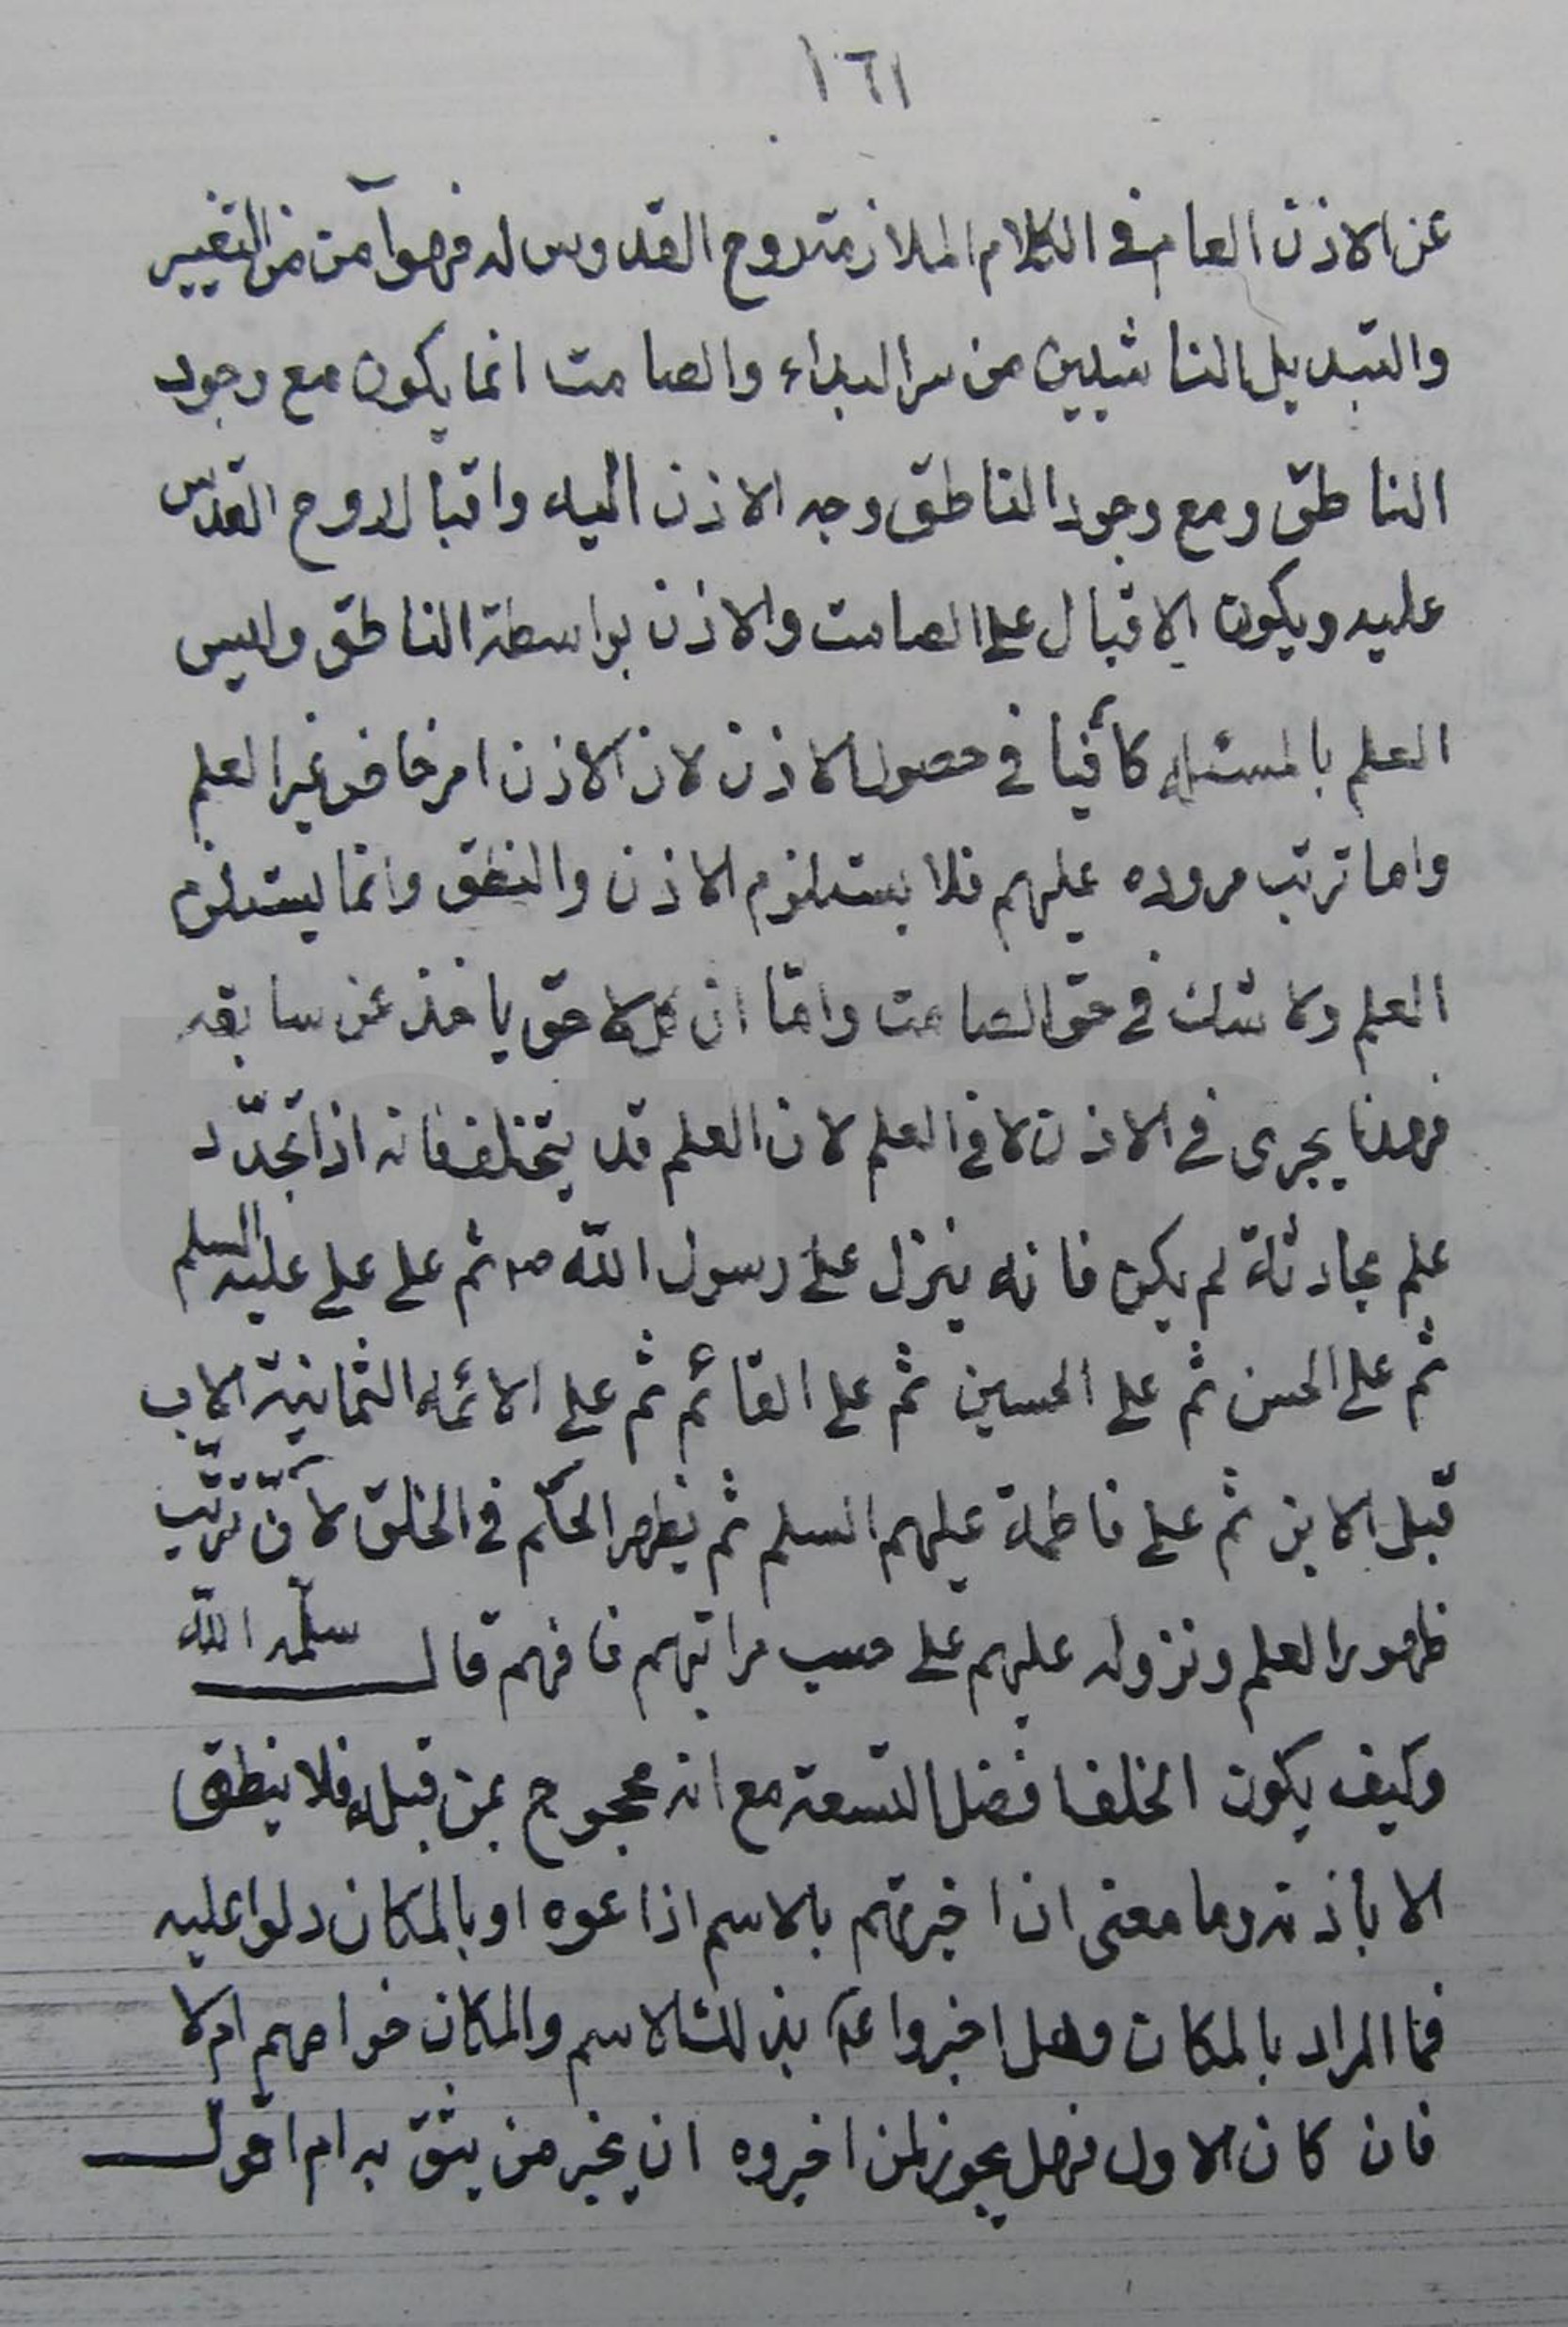 ١٦١
عن الاذن العام فى الكلام الملازمة روح القدوس له فهو آمن من التغيير
والتبديل الناشيين من سر البداء والصامت انما يكون مع وجود
الناطق ومع وجود الناطق وجه الاذن اليه واقبال روح القدس
عليه ويكون الاقبال على الصامت والاذن بواسطة الناطق وليس
العلم بالمسئله كافيا فى حصول الاذن لان الاذن امر خاص غير العلم
واما ترتب مروره عليهم فلا يستلزم الاذن والنطق وانما يستلزم
العلم ولا شك فى حق الصامت واما ان كل لاحق ياخذ عن سابقه
فهذا يجرى فى الاذن لا فى العلم لان العلم قد يتخلف فانه اذا تجدّد
علم بحادثة لم يكن فانه ينزل على رسول اللّه ص ثم على على عليه السلم
ثم على الحسن ثم على الحسين ثم على القائم ثم على الائمه الثمانية الاب
قبل الابن ثم على فاطمة عليهم السلم ثم يظهر الحكم فى الخلق لانّ ترتّب
ظهور العلم ونزوله عليهم على حسب مراتبهم فافهم قال سلّمه اللّه
وكيف يكون الخلف افضل التسعة مع انه محجوج بمن قبله فلا ينطق
الا باذنه وما معنى ان اخبرتهم بالاسم اذاعوه او بالمكان دلوا عليه
فما المراد بالمكان وهل اخبروا ع بذلك الاسم والمكان خواصهم ام لا
فان كان الاول فهل يجوز لمن اخبروه ان يخبر من يثق به ام اقول